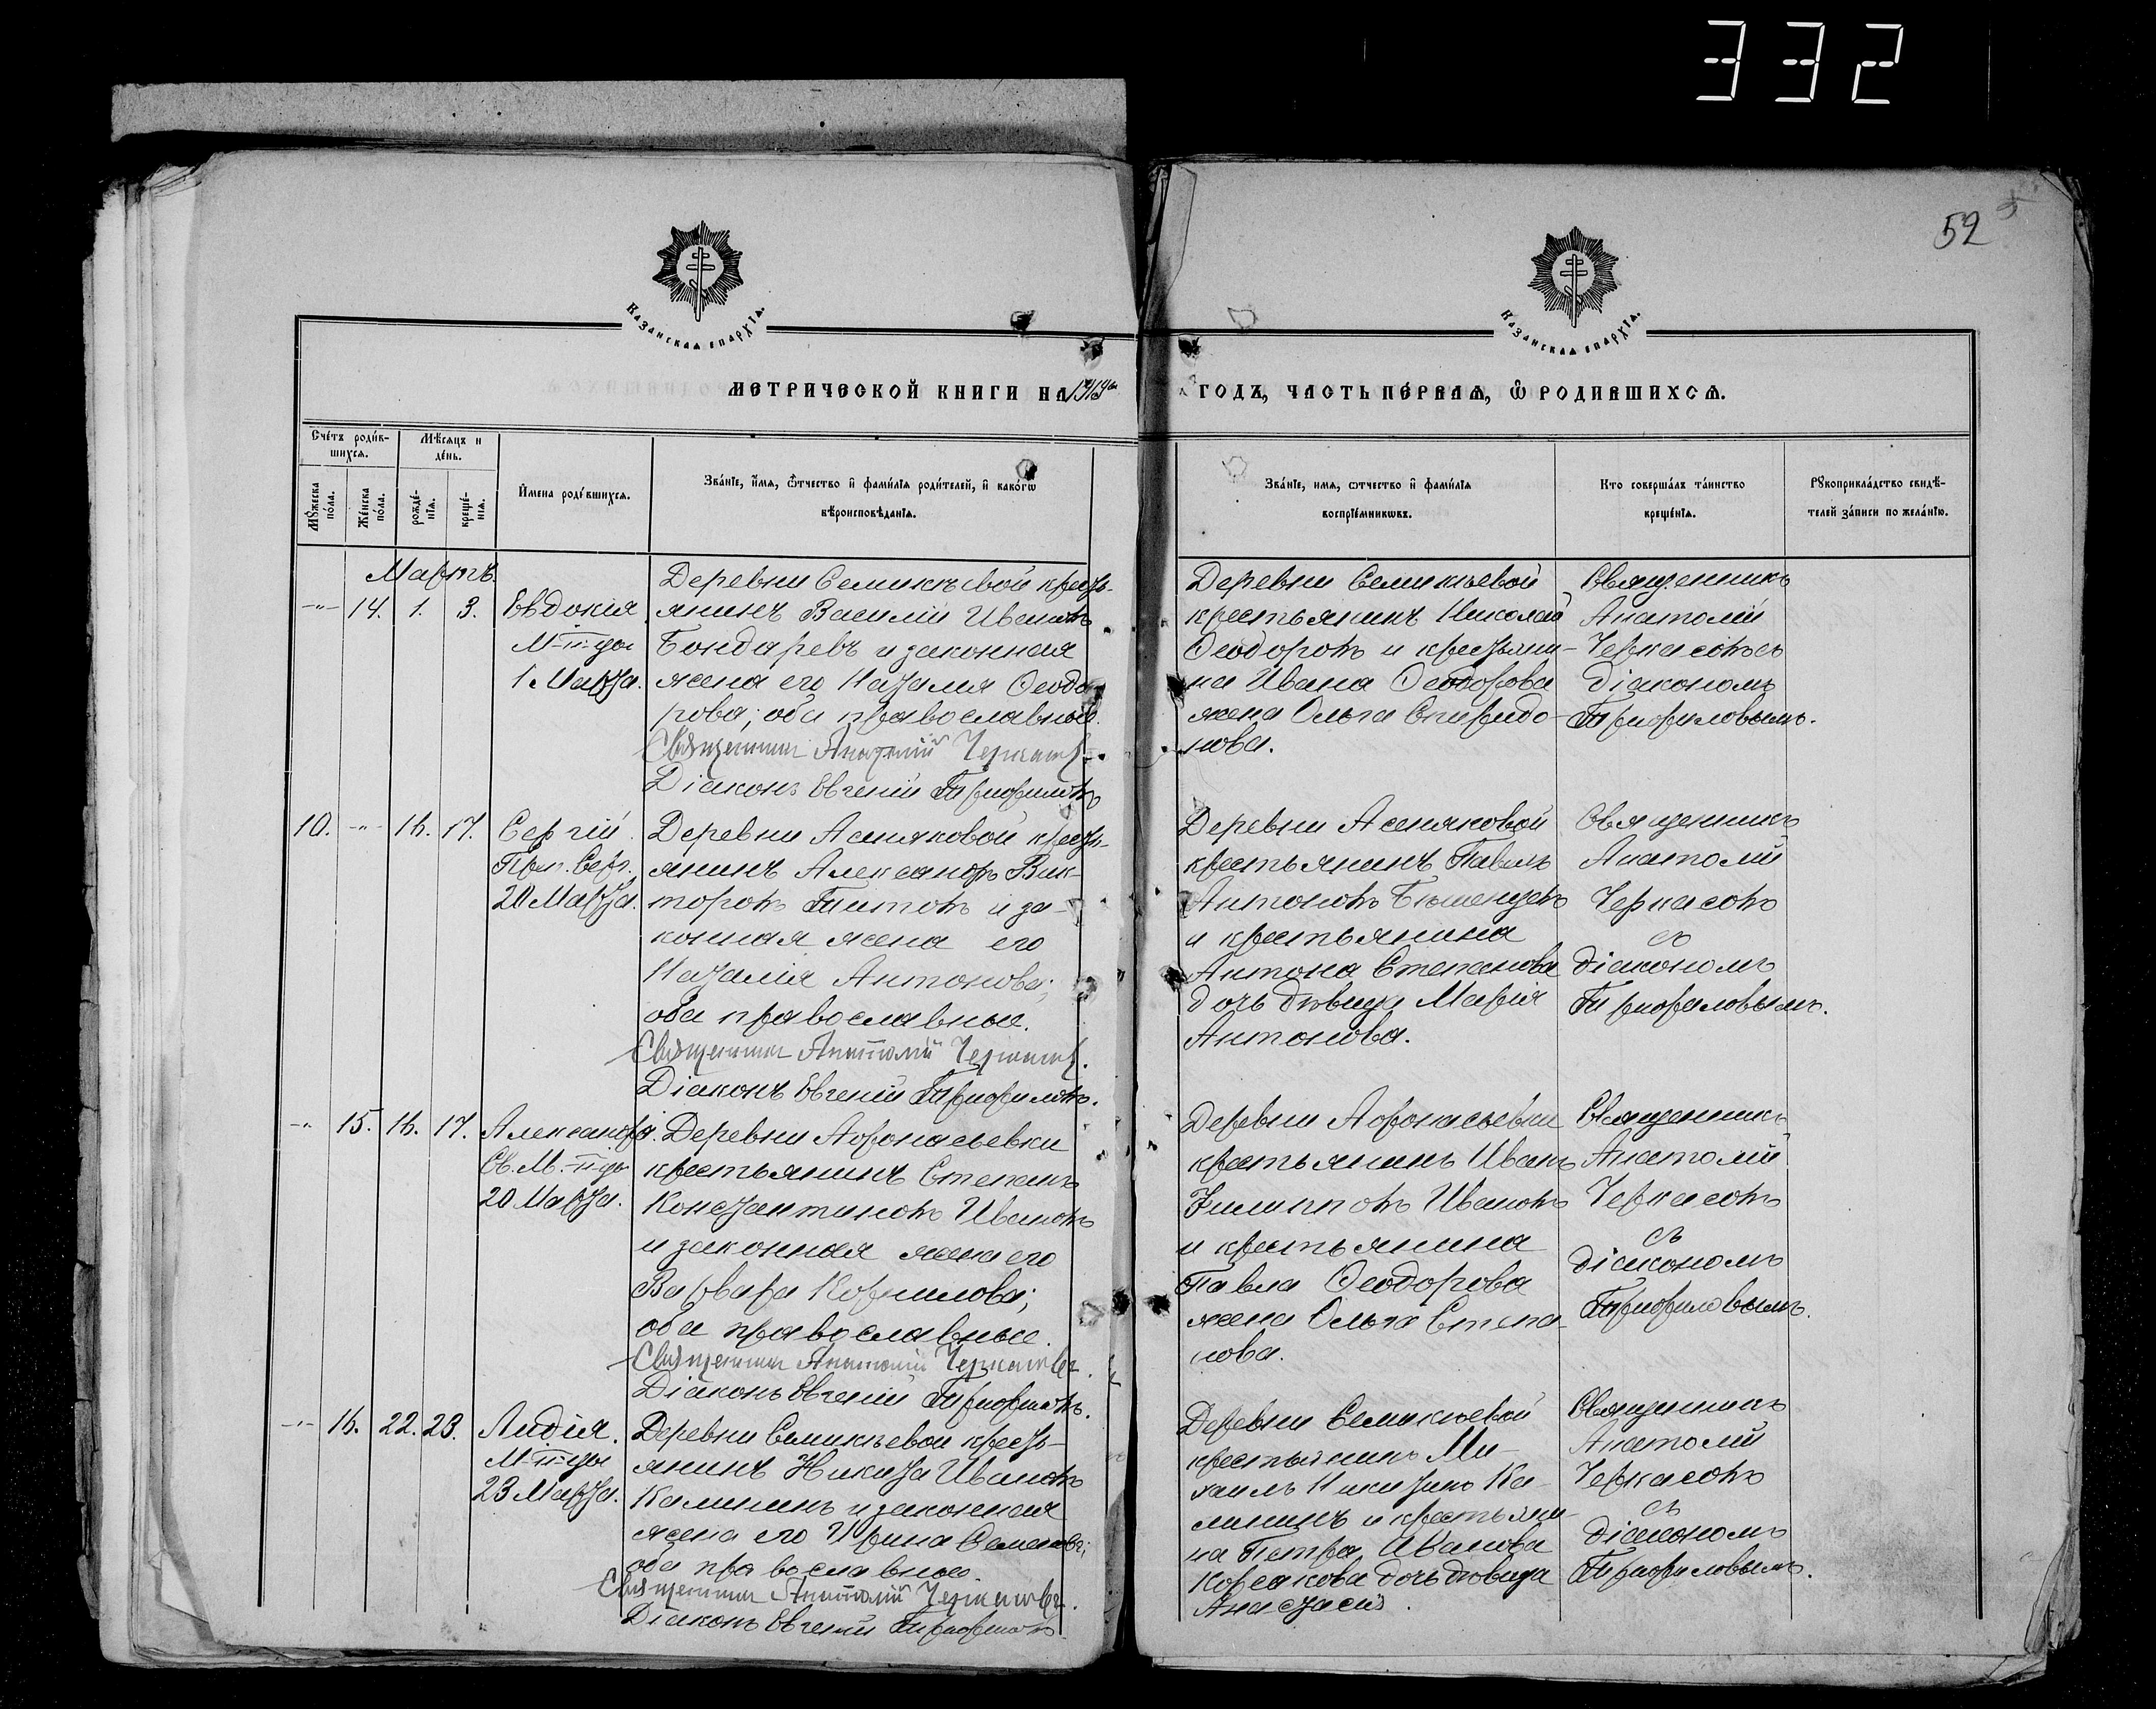 332
52
Казанская епархїѧ.
Казанская епархїѧ.
МЕТРИЧЕСКОЙ КНИГИ НА
ГОДЪ, ЧАСТЬ ПЕРВАѦ, Ѡ РОДИВШИХСѦ.
Счетъ родив-
шихсѧ.
Мѣсѧцъ и
день.
Мꙋжеска
пола.
Женска
пола.
рожде-
нїѧ.
креще-
нїѧ.
Имена родившихсѧ.
Званїе, имѧ, ѿчество и фамилїѧ родителей, и какогѡ
вѣроисповѣданїѧ.
Званїе, имѧ, ѡтчество и фамилїѧ
воспрїемникѡвъ.
Кто совершалъ таинство
крещенїѧ.
Рꙋкоприкладство свидѣ-
телей записи по желанїю.
Мартъ.
-"- 14. 1. 3.
Евдокія
М-цы
1 Марта.
Деревни Семикѣевой кресть-
янинъ Василій Ивановъ
Бондаревъ и законная
жена его Наталія Ѳеодо-
рова; оба православные.
Священникъ Анатолій Черкасовъ.
Діаконъ Евгеній Трифиловъ
Деревни Семикѣевой
крестьянинъ Николай
Ѳеодоровъ и крестьяни-
на Ивана Ѳеодорова
жена Ольга Спиридо-
нова.
Священникъ
Анатолій
Черкасовъ съ
діакономъ
Трифиловымъ.
10. -"- 16. 17.
Сергій.
Преп. Серг.
20 Марта.
Деревни Асняковой кресть-
янинъ Александръ Вик-
торовъ Титовъ и за-
конная жена его
Наталія Антонова;
оба православные.
Священникъ Анатолій Черкасовъ.
Діаконъ Евгеній Трифиловъ.
Деревни Асняковой
крестьянинъ Павелъ
Антоновъ
и крестьянина
Антона Степанова
дочь дѣвица Марія
Антонова.
Священникъ
Анатолій
Черкасовъ
съ
діакономъ
Трифиловымъ.
-"- 15. 16. 17.
Александра.
Св. М-цы
20 Марта.
Деревни Афонасьевки
крестьянинъ Степанъ
Константиновъ Ивановъ
и законная жена его
Варвара Корнилова;
оба православные.
Священникъ Анатолій Черкасовъ.
Діаконъ Евгеній Трифиловъ.
Деревни Афонасьевки
крестьянинъ Иванъ
Филипповъ Ивановъ
и крестьянина
Павла Ѳеодорова
жена Ольга Степа-
нова.
Священникъ
Анатолій
Черкасовъ
съ
діакономъ
Трифиловымъ.
-"- 16. 22. 23.
Лидія.
М-цы
23 Марта.
Деревни Семикѣевой кресть-
янинъ Никита Ивановъ
Калининъ и законная
жена его Ирина Семенова;
оба православные.
Священникъ Анатолій Черкасовъ.
Діаконъ Евгеній Трифиловъ.
Деревни Семикѣевой
крестьянинъ Ми-
хаилъ Никитинъ Ка-
лининъ и крестьяни-
на Петра Иванова
Корсакова дочь дѣвица
Анастасія.
Священникъ
Анатолій
Черкасовъ
съ
діакономъ
Трифиловымъ.